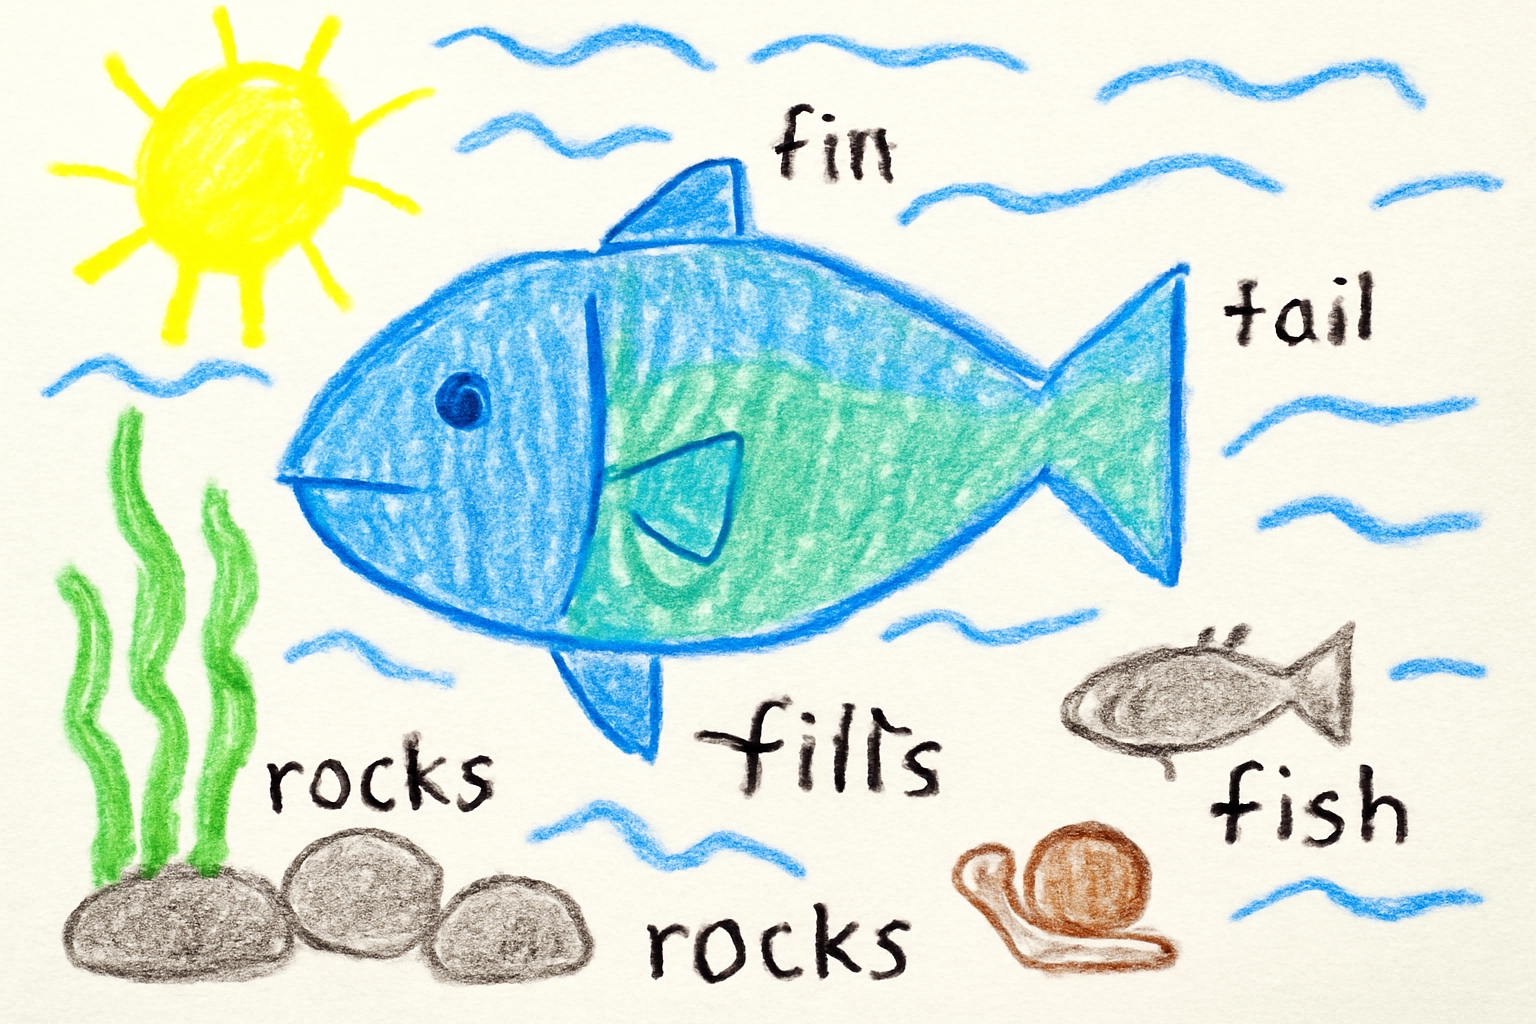 fin
tail
rocks
fills
fish
rocks